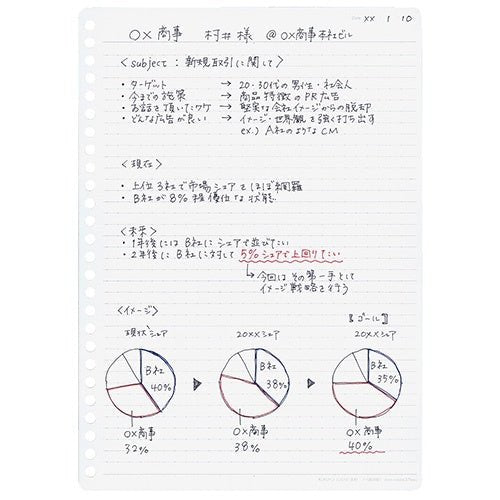 Date XX 1 10
〇×商事 村井様 @〇×商事本社ビル
<subject：新規取引に関して>
・ターゲット → 20・30代の男性・社会人
・今までの施策 → 商品特徴のPR広告
・お話を頂いたワケ → 堅実な会社イメージからの脱却
・どんな広告が良い → イメージ・世界観を強く打ち出す
ex.) A社のようなCM
<現在>
・上位3社で市場シェアをほぼ網羅
・B社が8%程優位な状態
<未来>
・1年後にはB社にシェアで並びたい
・2年後にB社に対して5%シェアで上回りたい
↳今回はその第一手として
イメージ戦略を行う
<イメージ>
【ゴール】
現状シェア 20××シェア 20××シェア
B社 40% ▶ B社 38% ▶ B社 35%
〇×商事 〇×商事 〇×商事
32% 38% 40%